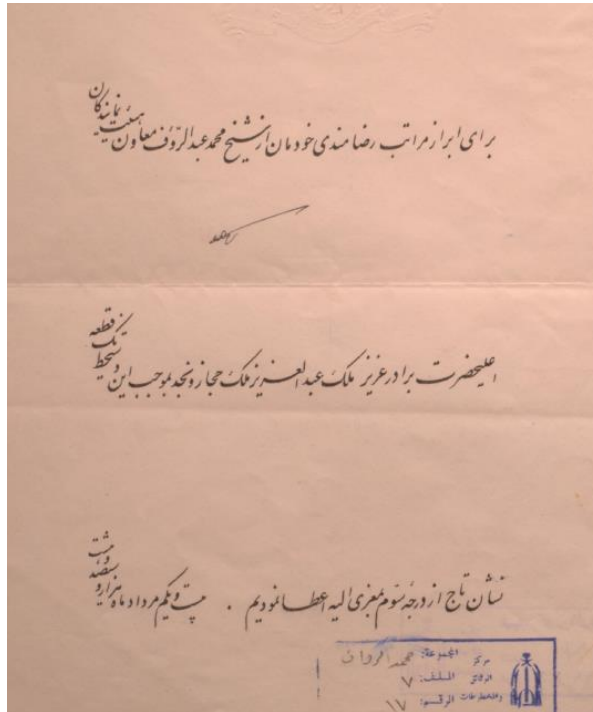 برای ابراز مراتب رضامندی خودمان از شیخ محمد عبدالرّؤف معاون هیئت نمایندگان
اعلیحضرت برادر عزیز ملک عبدالعزیز ملک حجاز و نجد بموجب این دستخط یک قطعه
نشان تاج از درجه سوّم بمعزی الیه اعطا نمودیم . بیست و یکم مرداد ماه هزار و سیصد و هشت
مركز الوثائق والمخطوطات
المجموعة: محمد الروان
الملف: ٧
الرقم: ١٧